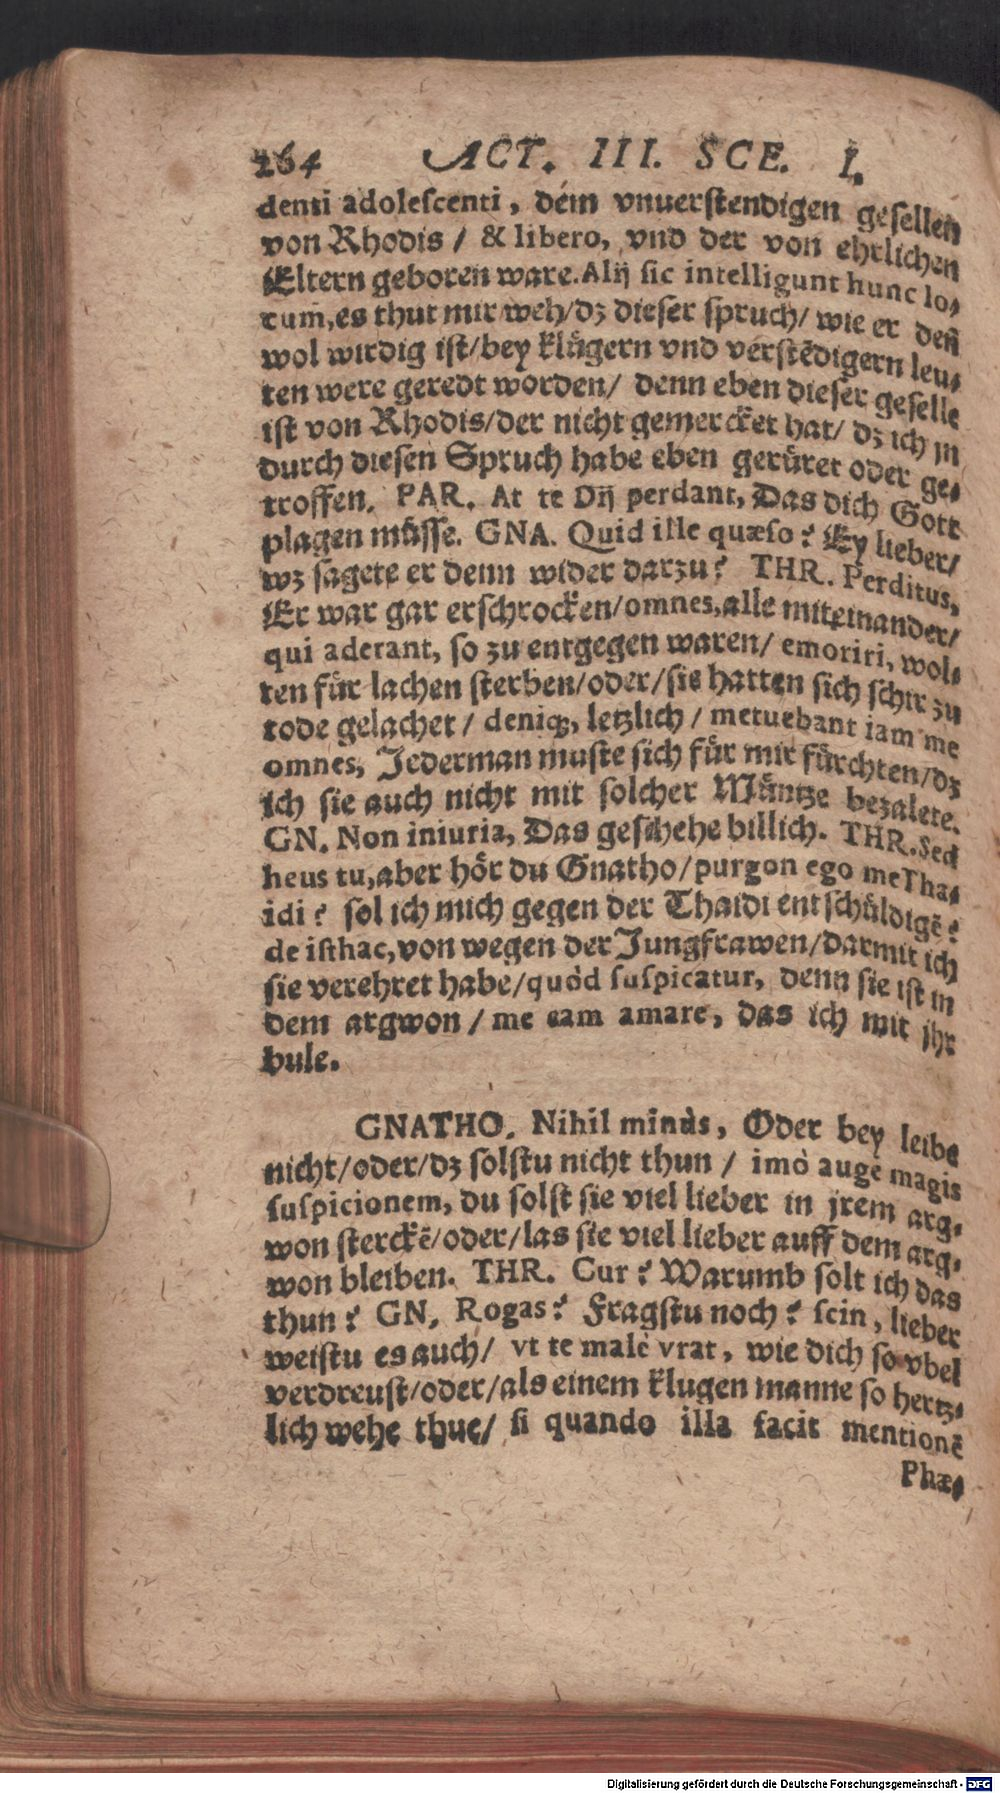 264 ACT. III. SCE. I.
denti adolescenti, dem vnuerstendigen gesellen
von Rhodis / & libero, vnd der von ehrlichen
Eltern geboren ware. Alij sic intelligunt hunc lo⸗
cum, es thut mir weh/dz dieser spruch/ wie er deñ
wol wirdig ist/bey klügern vnd verstēdigern leu⸗
ten were geredt worden/ denn eben dieser geselle
ist von Rhodis/der nicht gemercket hat/ dz ich jn
durch diesen Spruch habe eben gerüret oder ge⸗
troffen. PAR. At te Dij perdant, Das dich Gott
plagen müsse. GNA. Quid ille quæso? Ey lieber/
wz sagete er denn wider darzu? THR. Perditus,
Er war gar erschrocken/omnes, alle miteinander/
qui aderant, so zu entgegen waren/ emoriri, wol⸗
ten für lachen sterben/oder/sie hatten sich schir zu
tode gelachet/ deniq;, letzlich / metuebant iam me
omnes, Jederman muste sich für mir fürchten/dz
ich sie auch nicht mit solcher Müntze bezalete.
GN. Non iniuria, Das geschehe billich. THR. Sed
heus tu, aber hör du Gnatho/purgon ego me Tha⸗
idi? sol ich mich gegen der Thaidi entschüldigē?
de isthac, von wegen der Jungfrawen/darmit ich
sie verehret habe/quòd suspicatur, denn sie ist in
dem argwon / me eam amare, das ich mit jhr
bule.
GNATHO. Nihil minùs, Oder bey leibe
nicht/oder/dz solstu nicht thun / imò auge magis
suspicionem, du solst sie viel lieber in jrem arg⸗
won sterckē/oder/las sie viel lieber auff dem arg⸗
won bleiben. THR. Cur? Warumb solt ich das
thun? GN. Rogas? Fragstu noch? scin, lieber
weistu es auch/ vt te malè vrat, wie dich so vbel
verdreust/oder/als einem klugen manne so hertz⸗
lich wehe thue/ si quando illa facit mentionē
Phæ⸗
Digitalisierung gefördert durch die Deutsche Forschungsgemeinschaft - DFG